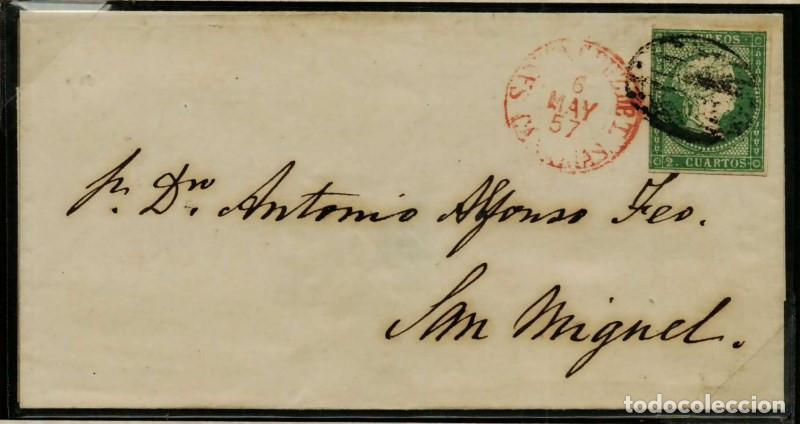 CORREOS
6
MAY
57
2. CUARTOS
Sr. Dn. Antonio Alfonso Feo.
San Miguel.
todocoleccion
todocoleccion.net